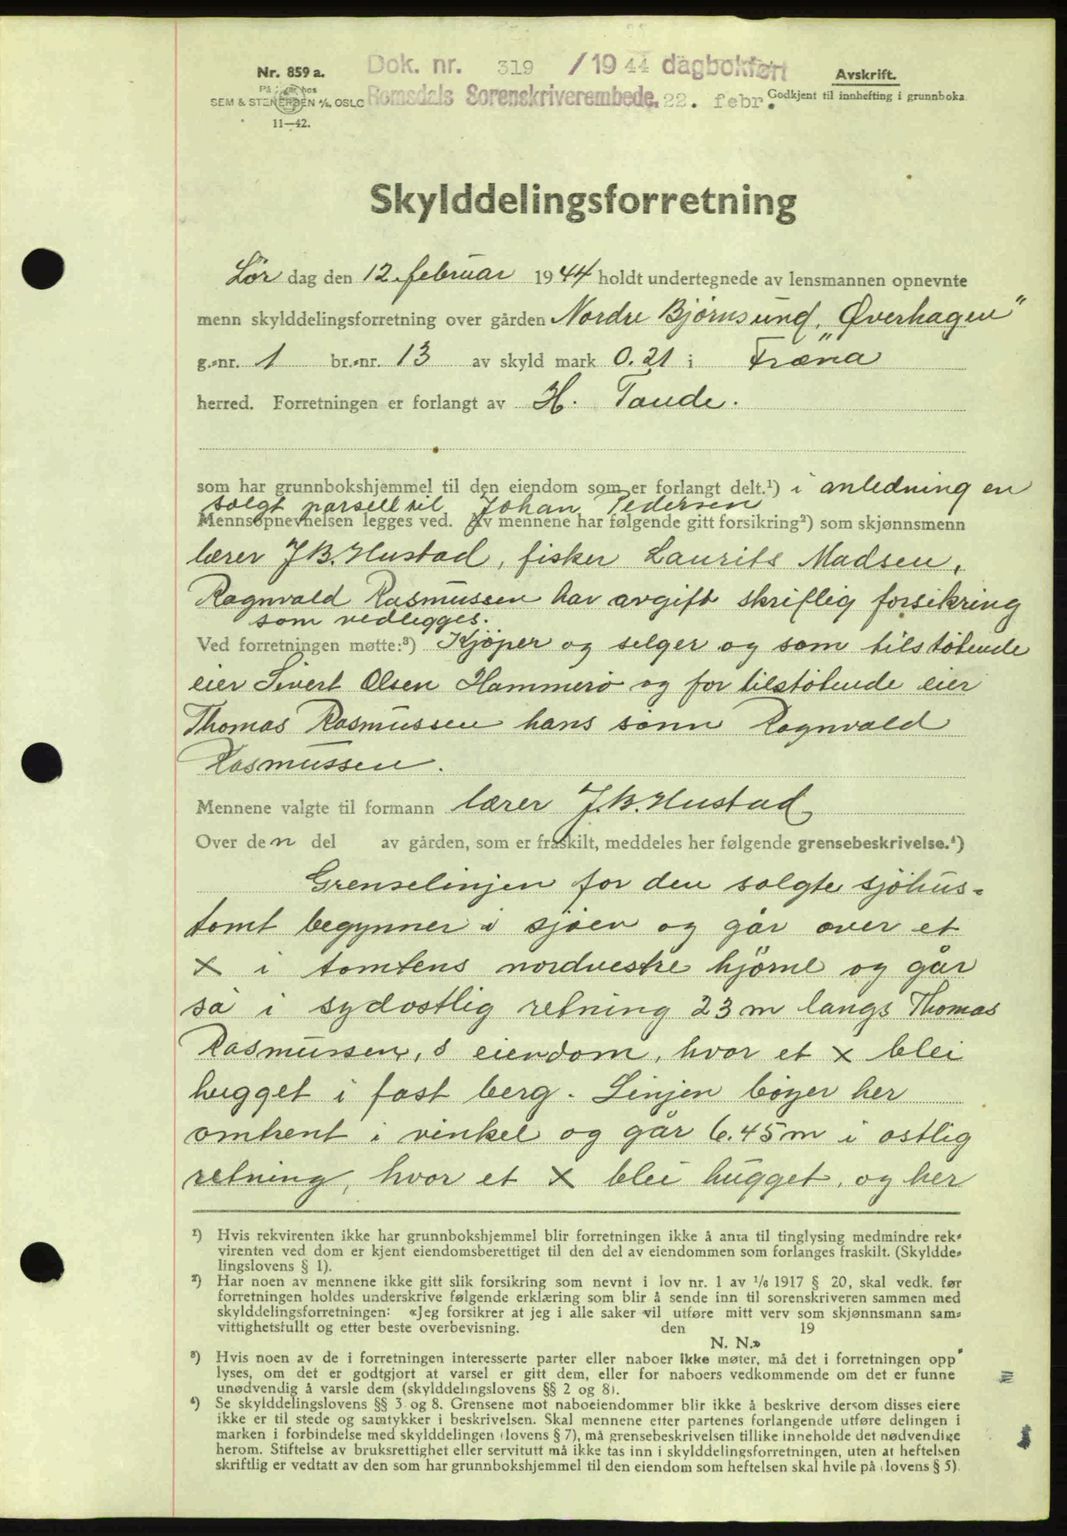 Nr. 859 a.
SEM & STENERSEN A/S, OSLO
11—42.
Dok. nr. 319 /1944 dagbokført
Romsdals Sorenskriverembede. 22. febr.
Avskrift.
Godkjent til innhefting i grunnboka
Skylddelingsforretning
Lør dag den 12. februar 1944 holdt undertegnede av lensmannen opnevnte
menn skylddelingsforretning over gården Nordre Bjørnsund, "Øverhagen"
g.nr. 1 br.nr. 13 av skyld mark 0.21 i Fræna
herred. Forretningen er forlangt av H. Taude.
som har grunnbokshjemmel til den eiendom som er forlangt delt.¹) i anledning en
solgt parsell til Johan Pedersen
Mennsopnevnelsen legges ved. Av mennene har følgende gitt forsikring²) som skjønnsmenn
lærer J.B. Hustad, fisker Laurits Madsen,
Ragnvald Rasmussen har avgift skriflig forsikring
som vedlegges.
Ved forretningen møtte:³) Kjøper og selger og som tilstøtende
eier Sivert Olsen Hammerö og for tilstøtende eier
Thomas Rasmussen hans sønn Ragnvald
Rasmussen.
Mennene valgte til formann lærer J.B. Hustad
Over den del av gården, som er fraskilt, meddeles her følgende grensebeskrivelse.⁴)
Grenselinjen for den solgte sjöhus-
tomt begynner i sjøen og går over et
× i tomtens nordvestre hjörne og går
så i sydostlig retning 23 m langs Thomas
Rasmussen,s eiendom, hvor et × blei
hugget i fast berg. Linjen böyer her
omtrent i vinkel og går 6.45 m i ostlig
retning, hvor et × blei hugget, og her
¹) Hvis rekvirenten ikke har grunnbokshjemmel blir forretningen ikke å anta til tinglysing medmindre rek-
virenten ved dom er kjent eiendomsberettiget til den del av eiendommen som forlanges fraskilt. (Skyldde-
lingslovens § 1).
²) Har noen av mennene ikke gitt slik forsikring som nevnt i lov nr. 1 av 1/6 1917 § 20, skal vedk. før
forretningen holdes underskrive følgende erklæring som blir å sende inn til sorenskriveren sammen med
skylddelingsforretningen: «Jeg forsikrer at jeg i alle saker vil utføre mitt verv som skjønnsmann sam-
vittighetsfullt og etter beste overbevisning. den 19
N. N.»
³) Hvis noen av de i forretningen interesserte parter eller naboer ikke møter, må det i forretningen opp
lyses, om det er godtgjort at varsel er gitt dem, eller for naboers vedkommende om det er funne
unødvendig å varsle dem (skylddelingslovens §§ 2 og 8).
⁴) Se skylddelingslovens §§ 3 og 8. Grensene mot naboeiendommer blir ikke å beskrive dersom disses eiere
ikke er til stede og samtykker i beskrivelsen. Skal mennene etter partenes forlangende utføre delingen i
marken i forbindelse med skylddelingen (lovens § 7), må grensebeskrivelsen tillike inneholde det nødvendige
herom. Stiftelse av bruksrettighet eller servitutt må ikke tas inn i skylddelingsforretningen, uten at heftelsen
skriftlig er vedtatt av den som har grunnbokshjemmel til den eiendom som heftelsen skal hvile på (lovens § 5).